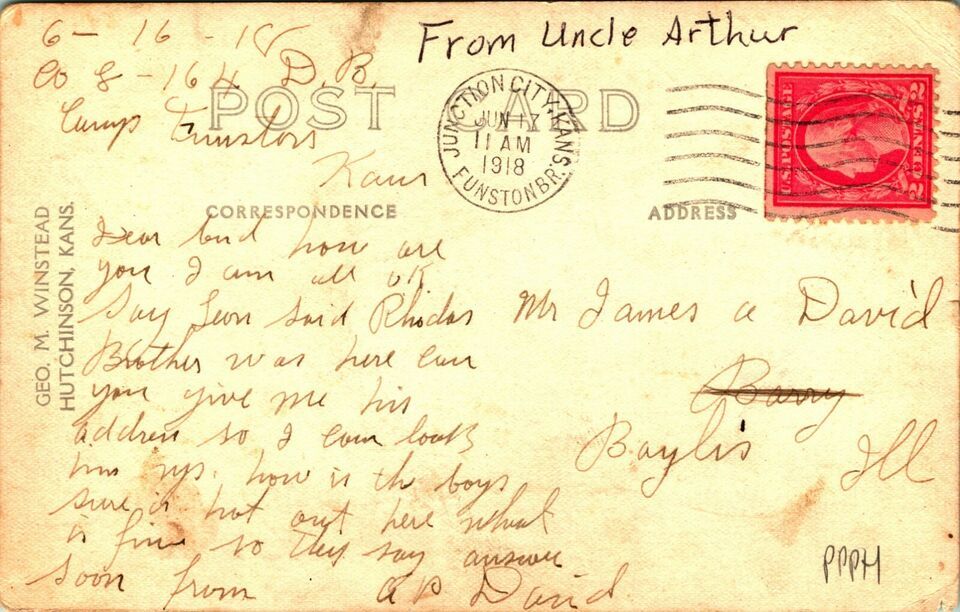 6 - 16 - 18
Co 8 - 164 D. B.
Camp Funston
Kans
From Uncle Arthur
POST CARD
JUNCTION CITY, KANS.
JUN 17
11 AM
1918
FUNSTON BR.
U.S. POSTAGE
2 CENTS 2
CORRESPONDENCE
ADDRESS
GEO. M. WINSTEAD
HUTCHINSON, KANS.
Dear bud how are
you I am all ok
Say Leon said Rhodas
Brother was here can
you give me his
address so I can look
him up. how is th boys
sure is hot out here wheat
is fine so they say answer
soon from A P David
Mr James a David
Barry
Baylis Ill
PPPH